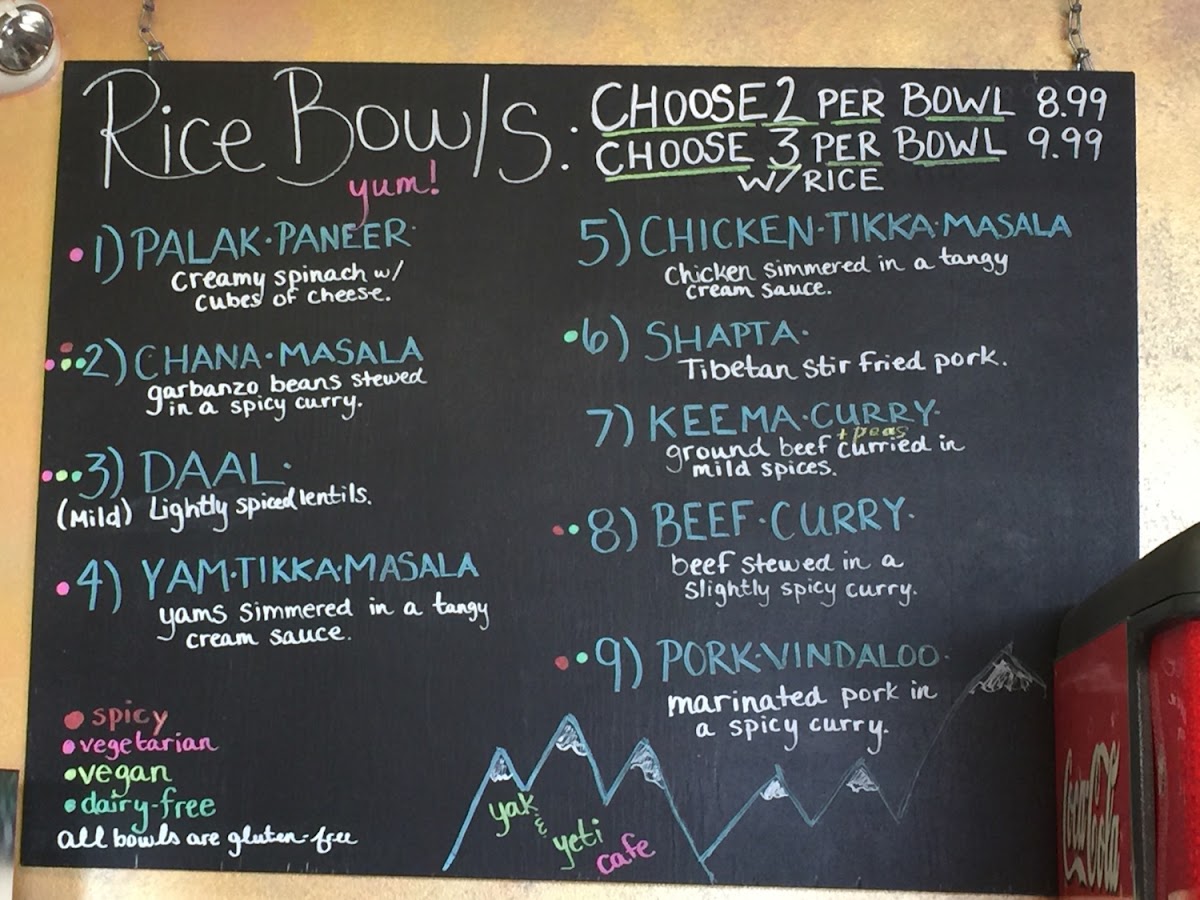 Rice Bowls:
yum!
CHOOSE 2 PER BOWL 8.99
CHOOSE 3 PER BOWL 9.99
W/ RICE
1) PALAK·PANEER·
Creamy spinach w/
cubes of cheese.
2) CHANA·MASALA
garbanzo beans stewed
in a spicy curry.
3) DAAL·
(Mild) Lightly spiced lentils.
4) YAM·TIKKA·MASALA
yams simmered in a tangy
cream sauce.
5) CHICKEN·TIKKA·MASALA
Chicken simmered in a tangy
cream sauce.
6) SHAPTA·
Tibetan stir fried pork.
7) KEEMA·CURRY·
+ peas
ground beef curried in
mild spices.
8) BEEF·CURRY·
beef stewed in a
slightly spicy curry.
9) PORK·VINDALOO·
marinated pork in
a spicy curry.
spicy
vegetarian
vegan
dairy-free
all bowls are gluten-free
yak &
yeti
cafe
Coca-Cola